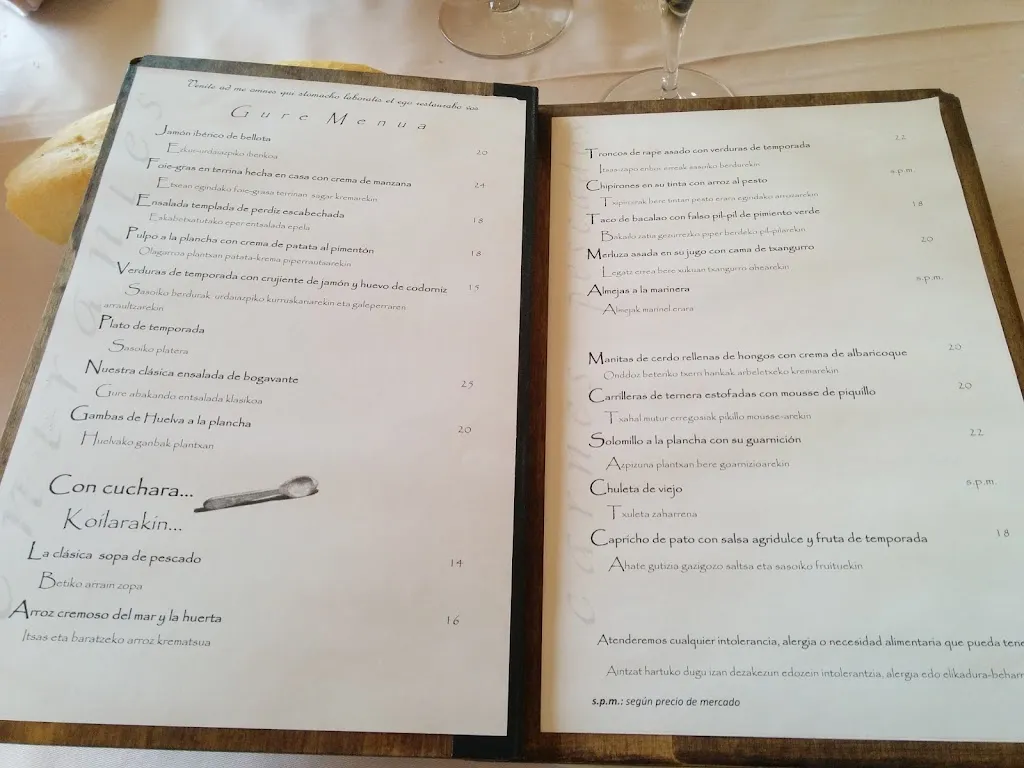 Venite ad me omnes qui stomacho laboratis et ego restaurabo vos
Gure Menua
Jamón ibérico de bellota 20
Edun-urdaiazpiko iberikoa
Foie-gras en terrina hecha en casa con crema de manzana 24
Etxean egindako foie-grasa terrinan sagar kremarekin
Ensalada templada de perdiz escabechada 18
Eskabetxatutako eper entsalada epela
Pulpo a la plancha con crema de patata al pimentón 18
Olagarroa plantxan patata-krema piperrautsarekin
Verduras de temporada con crujiente de jamón y huevo de codorniz 15
Sasoiko berdurak urdaiazpiko kurruskariarekin eta galeperraren
arraultzarekin
Plato de temporada
Sasoiko platera
Nuestra clásica ensalada de bogavante 25
Gure abakando entsalada klasikoa
Gambas de Huelva a la plancha 20
Huelvako ganbak plantxan
Con cuchara...
Koilarakin...
La clásica sopa de pescado 14
Betiko arrain zopa
Arroz cremoso del mar y la huerta 16
Itsas eta baratzeko arroz krematsua
Troncos de rape asado con verduras de temporada 22
Itsas-zapo enbor erreak sasoiko berdurekin
Chipirones en su tinta con arroz al pesto s.p.m.
Txipiroiak bere tintan pesto erara egindako arrozarekin
Taco de bacalao con falso pil-pil de pimiento verde 18
Bakailo zatia gezurrezko piper berdeko pil-pilarekin
Merluza asada en su jugo con cama de txangurro 20
Legatz errea bere xukuan txangurro ohearekin
Almejas a la marinera s.p.m.
Almejak marinel erara
Manitas de cerdo rellenas de hongos con crema de albaricoque 20
Onddoz beteriko txerri hankak arbeletxeko kremarekin
Carrilleras de ternera estofadas con mousse de piquillo 20
Txahal mutur erregosiak pikillo mousse-arekin
Solomillo a la plancha con su guarnición 22
Azpizuna plantxan bere goarnizioarekin
Chuleta de viejo s.p.m.
Txuleta zaharrena
Capricho de pato con salsa agridulce y fruta de temporada 18
Ahate gutizia gazigozo saltsa eta sasoiko fruituekin
Atenderemos cualquier intolerancia, alergia o necesidad alimentaria que pueda tene
Aintzat hartuko dugu izan dezakezun edozein intolerantzia, alergia edo elikadura-beharr
s.p.m.: según precio de mercado